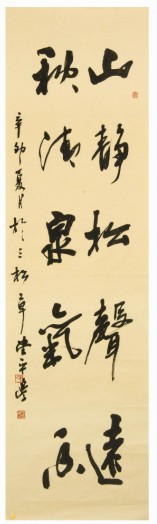 山靜松聲遠
秋清泉氣香
辛卯夏月於三松草堂